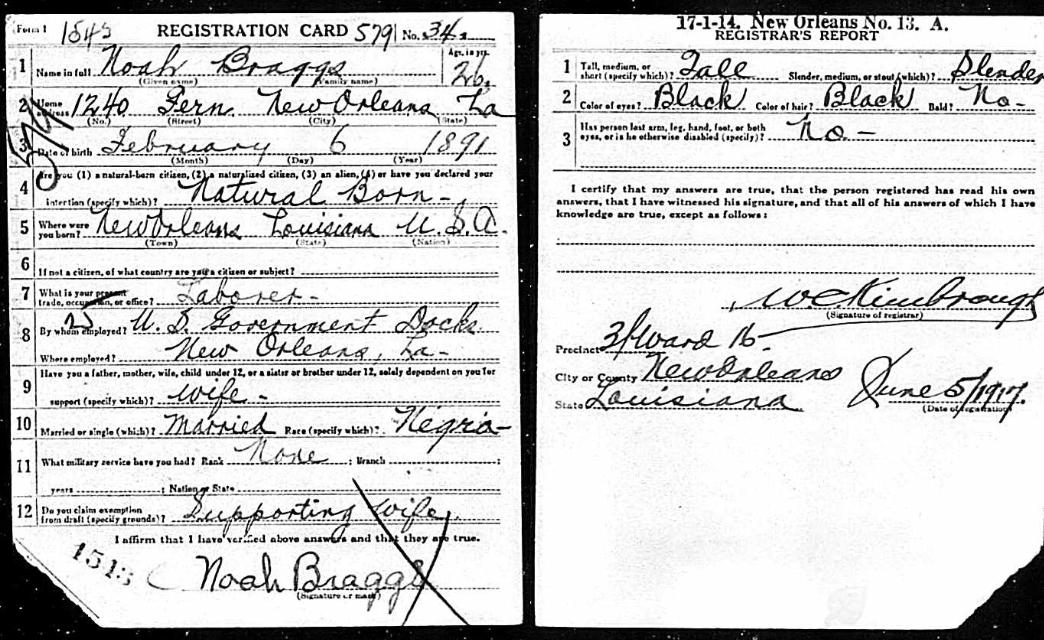 Form 1 1543 REGISTRATION CARD 579 No. 34
1 Name in full Noah Braggs Age, in yrs. 26
(Given name) (Family name)
2 Home address 1240 Fern New Orleans La
(No.) (Street) (City) (State)
579
3 Date of birth February 6 1891
(Month) (Day) (Year)
4 Are you (1) a natural-born citizen, (2) a naturalized citizen, (3) an alien, (4) or have you declared your
intention (specify which)? Natural Born -
5 Where were you born? New Orleans Louisiana U. S. A.
(Town) (State) (Nation)
6 If not a citizen, of what country are you a citizen or subject?
7 What is your present trade, occupation, or office? Laborer -
8 By whom employed? U. S. Government Docks
Where employed? New Orleans, La -
9 Have you a father, mother, wife, child under 12, or a sister or brother under 12, solely dependent on you for
support (specify which)? Wife -
10 Married or single (which)? Married Race (specify which)? Negro -
11 What military service have you had? Rank None ; Branch ;
years ; Nation or State
12 Do you claim exemption from draft (specify grounds)? Supporting Wife
I affirm that I have verified above answers and that they are true.
1543
Noah Braggs
(Signature or mark)
17-1-14. New Orleans No. 13. A.
REGISTRAR'S REPORT
1 Tall, medium, or short (specify which)? Tall Slender, medium, or stout (which)? Slender
2 Color of eyes? Black Color of hair? Black Bald? No -
3 Has person lost arm, leg, hand, foot, or both eyes, or is he otherwise disabled (specify)? No -
I certify that my answers are true, that the person registered has read his own
answers, that I have witnessed his signature, and that all of his answers of which I have
knowledge are true, except as follows:
W C Kimbrough
(Signature of registrar)
Precinct 3/Ward 16
City or County New Orleans
State Louisiana June 5/1917.
(Date of registration)